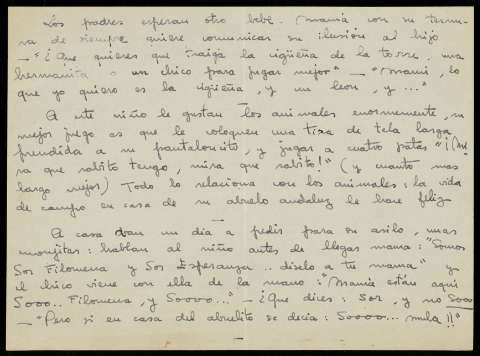 Los padres esperan otro bebé. Mamá con su ternu-
ra de siempre quiere comunicar su ilusión al hijo
—"¿Que quieres que traiga la cigüeña de la torre, una
hermanita o un chico para jugar mejor"— "Mami, lo
que yo quiero es la cigüeña, y un leon, y ..."
A este niño le gustan los animales enormemente, su
mejor juego es que le coloquen una tira de tela larga
prendida a su pantaloncito, y jugar a cuatro patas "¡Mi
ra que rabito tengo, mira que rabito!" (y cuanto mas
largo mejor) Todo lo relaciona con los animales: la vida
de campo en casa de su abuelo andaluz le hace feliz
A casa van un dia a pedir para su asilo, unas
monjitas: hablan al niño antes de llegar mama: "Somos
Sor Filomena y Sor Esperanza.. diselo a tu mama" y
el chico viene con ella de la mano: "Mamá están aqui
Sooo.. Filomena, y Soooo..." — ¿Que dices: Sor, y no Sooo
— "Pero si en casa del abuelito se decia: Soooo.... mula!!"